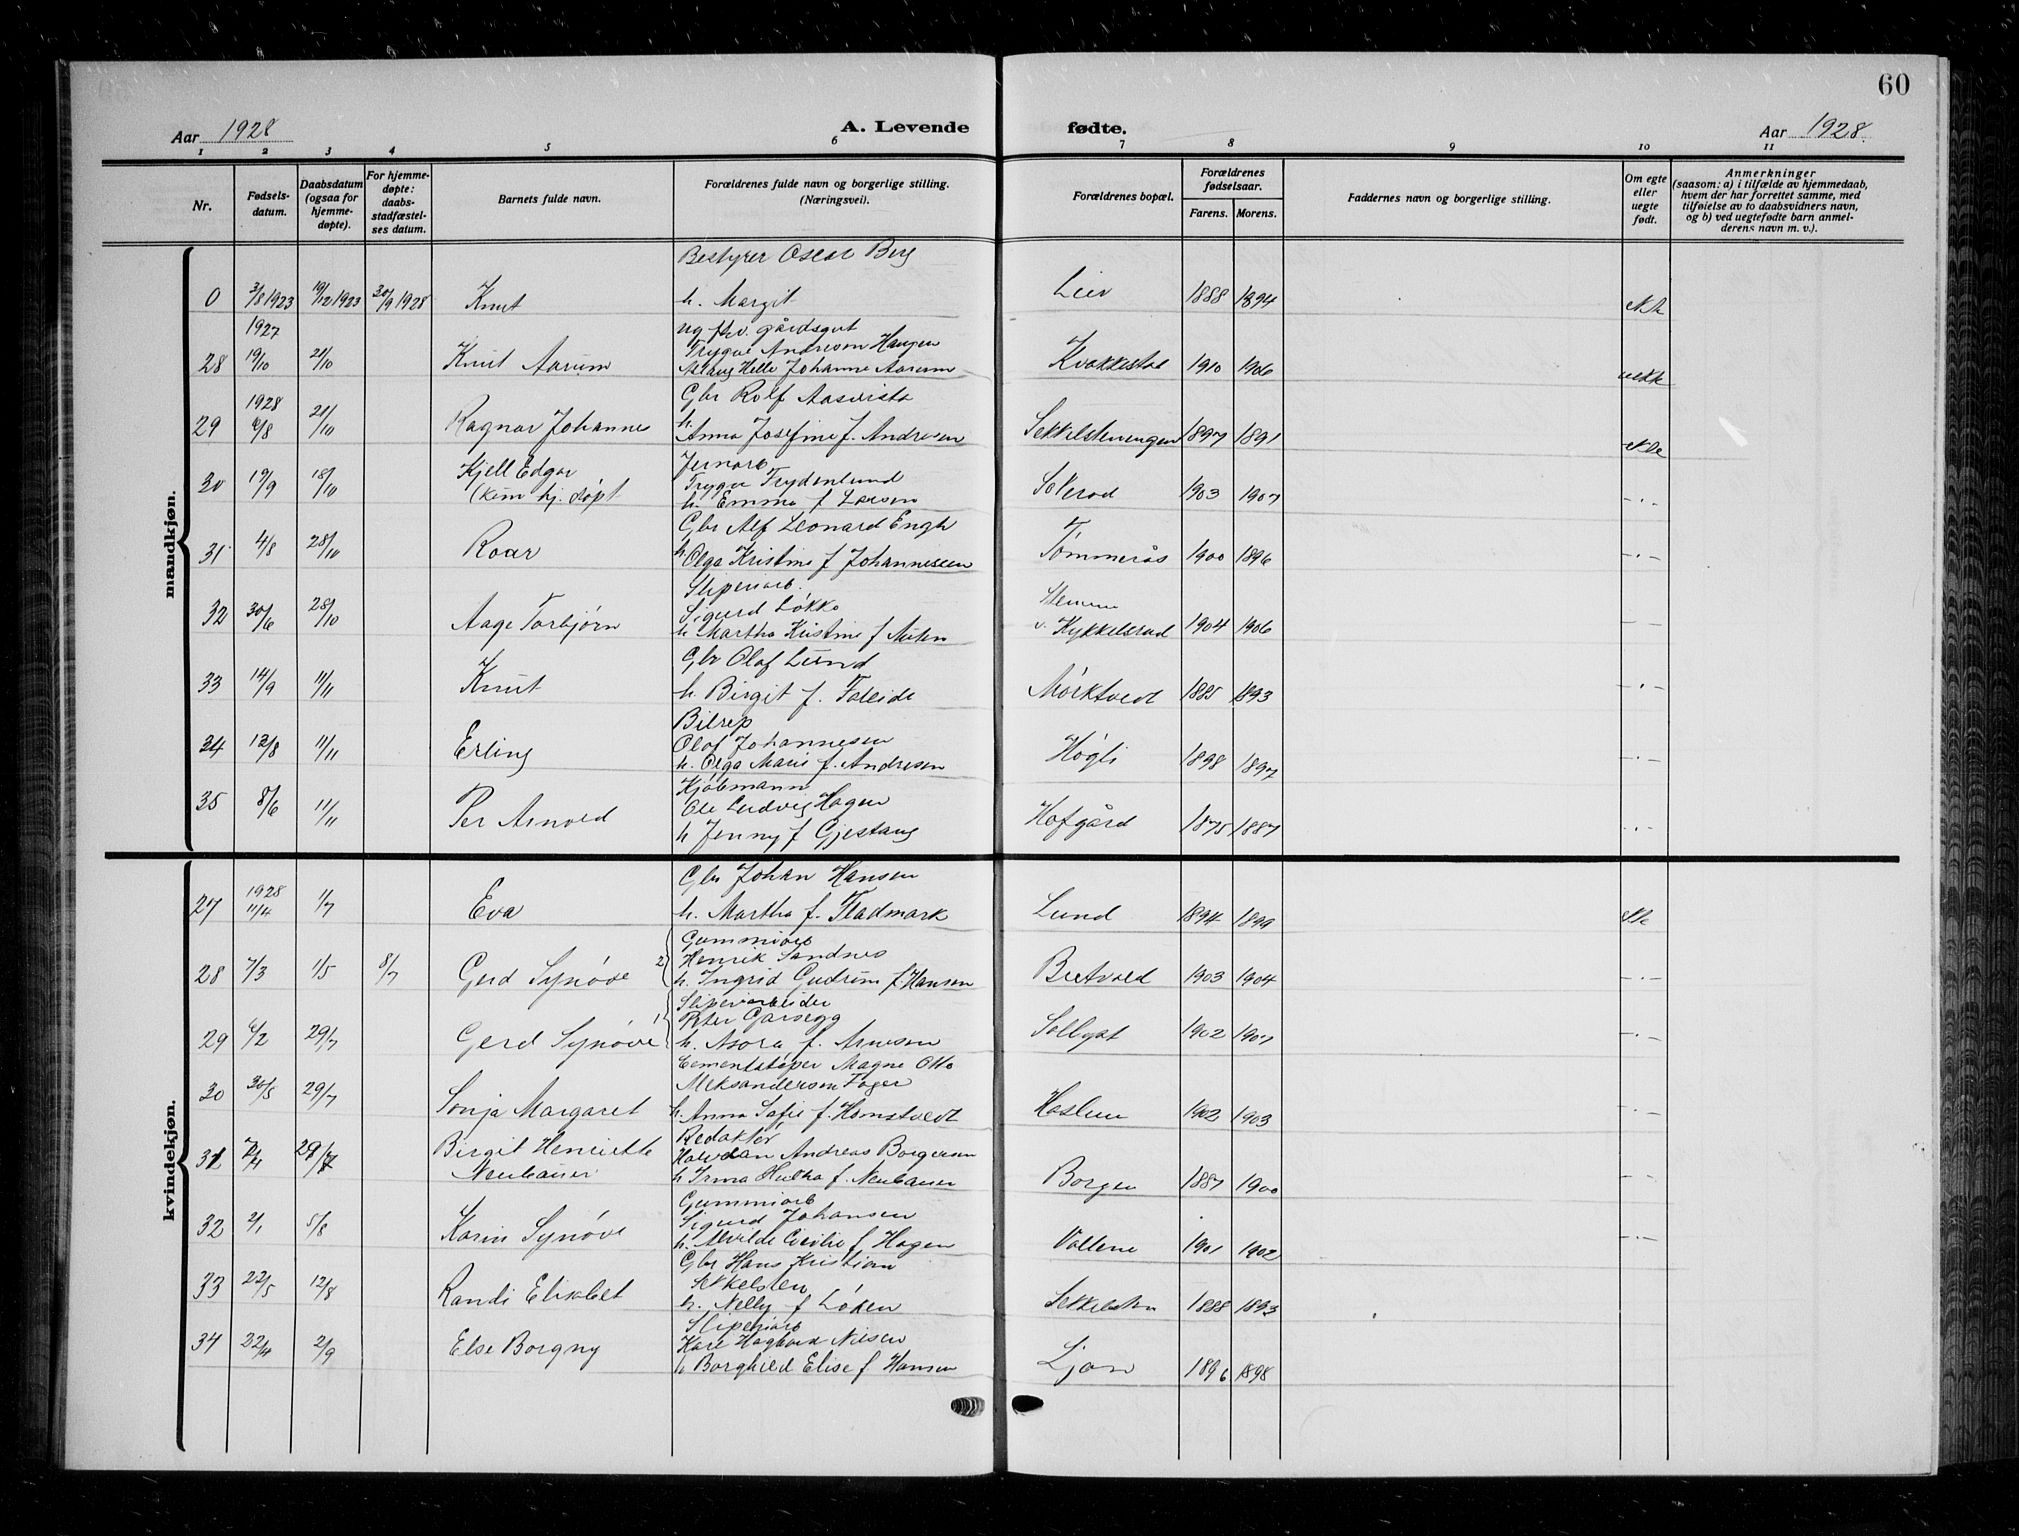 60
Aar 1928
A. Levende fødte.
Aar 1928.
1 2 3 4 5 6 7 8 9 10 11
Nr.
Fødsels-
datum.
Daabsdatum
(ogsaa for
hjemme-
døpte).
For hjemme-
døpte:
daabs-
stadfæstel-
ses datum.
Barnets fulde navn.
Forældrenes fulde navn og borgerlige stilling.
(Næringsvei).
Forældrenes bopæl.
Forældrenes
fødselsaar.
Farens. Morens.
Faddernes navn og borgerlige stilling.
Om egte
eller
uegte
født.
Anmerkninger
(saasom: a) i tilfælde av hjemmedaab,
hvem der har forrettet samme, med
tilføielse av to daabsvidners navn,
og b) ved uegtefødte barn anmel-
derens navn m. v.).
mandkjøn.
Bestyrer Oscar Berg
0 3/8 1923 19/12 1923 30/9 1928 Knut h. Margit Lier 1888 1894 ekte
1927
ug. fhv. gårdsgut
Trygve Andresen Haugen
28 19/10 21/10 Knut Aarum Helle Johanne Aarum 1910 1906 uekte
1928
Gbr Rolf
29 6/8 21/10 Ragnar Johannes h. Anna Josefine f. Andresen 1897 1891 ekte
Jernarb
Trygve Frydenlund
30 19/9 18/10 Kjell Edgar h. Emma f Larsen Solerod 1903 1907 - . -
(kun hj. døpt
Gbr Alf Leonard Engh
31 4/8 28/10 Roar h. Olga Kristine f Johannessen Tømmerås 1900 1896 - . -
Sliperiarb.
Sigurd Løkke
32 30/6 28/10 Aage Torbjørn h Martha Kristine f Stemme
v. Kykkelsrud 1904 1906 - . -
Gbr Olaf Lund
33 14/9 11/11 Knut h. Birgit f. Mørktvedt 1885 1893 - . -
Bilrep
Olaf Johannesen
34 12/8 11/11 Erling h. Olga Marie f. Andresen Høgli 1898 1897 - . -
Kjøbmann
Ole Ludvig Hagen
35 8/6 11/11 Per Arnold h Jenny f Gjestang Hofgård 1875 1887 - . -
kvindekjøn.
Gbr Johan Hansen
27 1928 11/4 1/7 Eva h. Martha f. Fladmark Lund 1894 1899 ekte
Gummiarb
Henrik Sandnes
28 7/3 1/5 8/7 Gerd Synøve 2 h. Ingrid Gudrun f Hansen 1903 1904 - . -
Sliperiarbeider
Peter Garsegg
29 6/2 29/7 Gerd Synøve 1 h. Asora f. Arnesen 1902 1907 - . -
Cementstøper Magne Otto
Aleksandersen Fager
30 30/5 29/7 Sonja Margaret h. Anna Sofie f. Homstvedt Haslum 1902 1903 - . -
Redaktør
Halvdan Andreas Borgersen
31 2/4 29/7 Birgit Henriette
Neubauer h Irma Hulka f. Neubauer Borgen 1887 1900 - . -
Gummiarb
Sigurd Johansen
32 2/1 5/8 Karin Synøve h. Alvilde Cecilie f Hagen Vollene 1901 1902 - . -
Gbr Hans Kristian
Sekkelsten
33 22/5 12/8 Randi Elisabet h. Nelly f Løken Sekkelsten 1888 1893
Sliperiarb
Kare Hagbard Nilsen
34 22/4 2/9 Else Borgny h Borghild Elise f Hansen Ljan 1896 1898